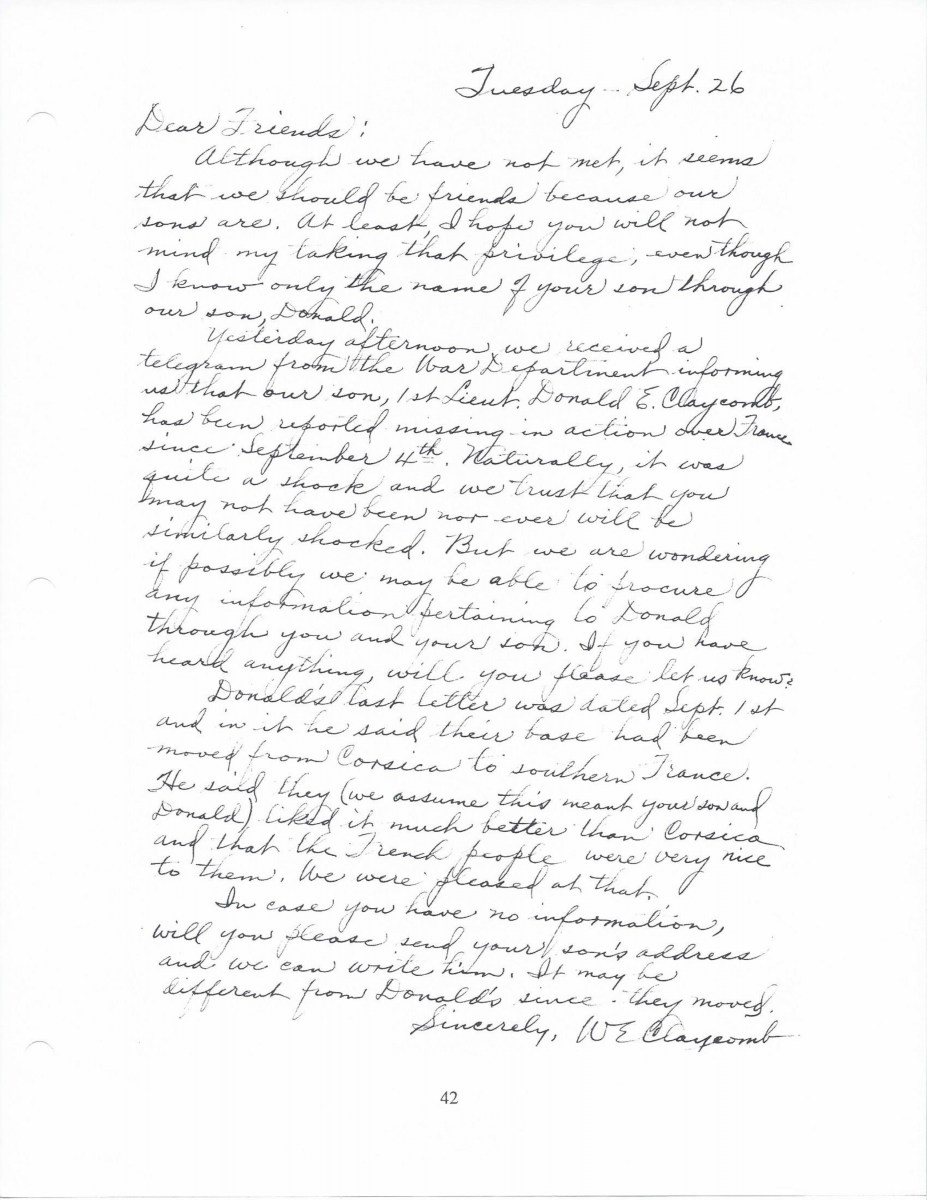 Tuesday - Sept. 26
Dear Friends:
Although we have not met, it seems
that we should be friends because our
sons are. At least, I hope you will not
mind my taking that privilege, even though
I know only the name of your son through
our son, Donald.
Yesterday afternoon we received a
telegram from the War Department informing
us that our son, 1st Lieut. Donald E. Claycomb,
has been reported missing in action over France
since September 4th. Naturally, it was
quite a shock and we trust that you
may not have been nor ever will be
similarly shocked. But we are wondering
if possibly we may be able to procure
any information pertaining to Donald
through you and your son. If you have
heard anything, will you please let us know?
Donald's last letter was dated Sept. 1st
and in it he said their base had been
moved from Corsica to southern France.
He said they (we assume this meant your son and
Donald) liked it much better than Corsica
and that the French people were very nice
to them. We were pleased at that.
In case you have no information,
will you please send your son's address
and we can write him. It may be
different from Donald's since they moved.
Sincerely, W E Claycomb
42